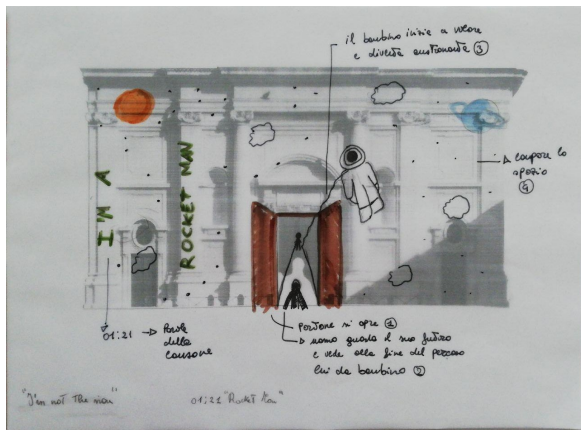 il bambino inizia a volare
e diventa austronauta ③
I'M A
ROCKET MAN
compare lo
spazio
④
01:21 → Parole
della
canzone
portone si apre ①
uomo guarda il suo futuro
e vede alla fine del percorso
lui da bambino ②
"I'm not the man"
01:21 "Rocket Man"